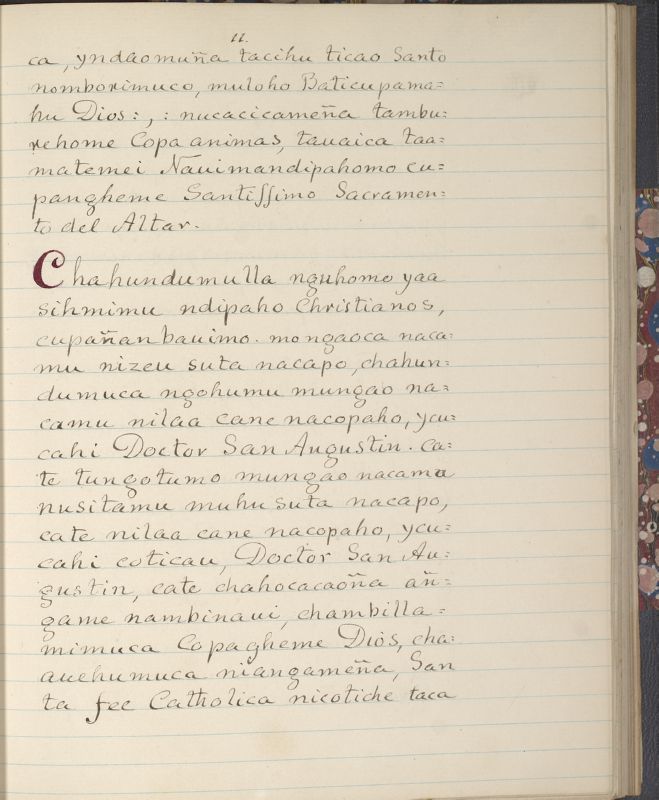 11.
ca, yndaomuña tacihu ticao Santo
nomborimuco, muloho Baticupama=
hu Dios:,: nucacicameña tambu=
rehome Copa animas, tauaica taa=
matemei Nauimandipahomo cu=
pangheme Santissimo Sacramen=
to del Altar.
Chahundumulla nguhomo yaa
sihmimu ndipaho Christianos,
cupañan bauimo. mongaoca naca=
mu nizeu suta nacapo, chahun=
dumuca ngohumu mungao na=
camu nilaa cane nacopaho, ycu=
cahi Doctor San Augustin. ca=
te tungotumo mungao nacamu
nusitamu muhu suta nacapo,
cate nilaa cane nacopaho, ycu=
cahi coticau, Doctor San Au=
gustin, cate chahocacaoña añ=
game nambinaui, chambilla=
mimuca Copagheme Dios, cha=
auehumuca niangameña, San
ta fee Catholica nicotiche taca